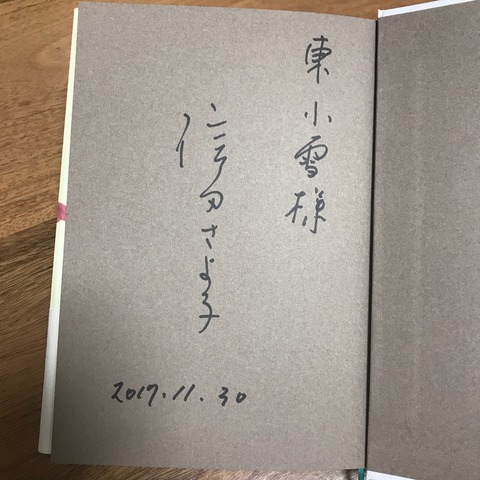 東小雪様
信田さよ子
2017.11.30